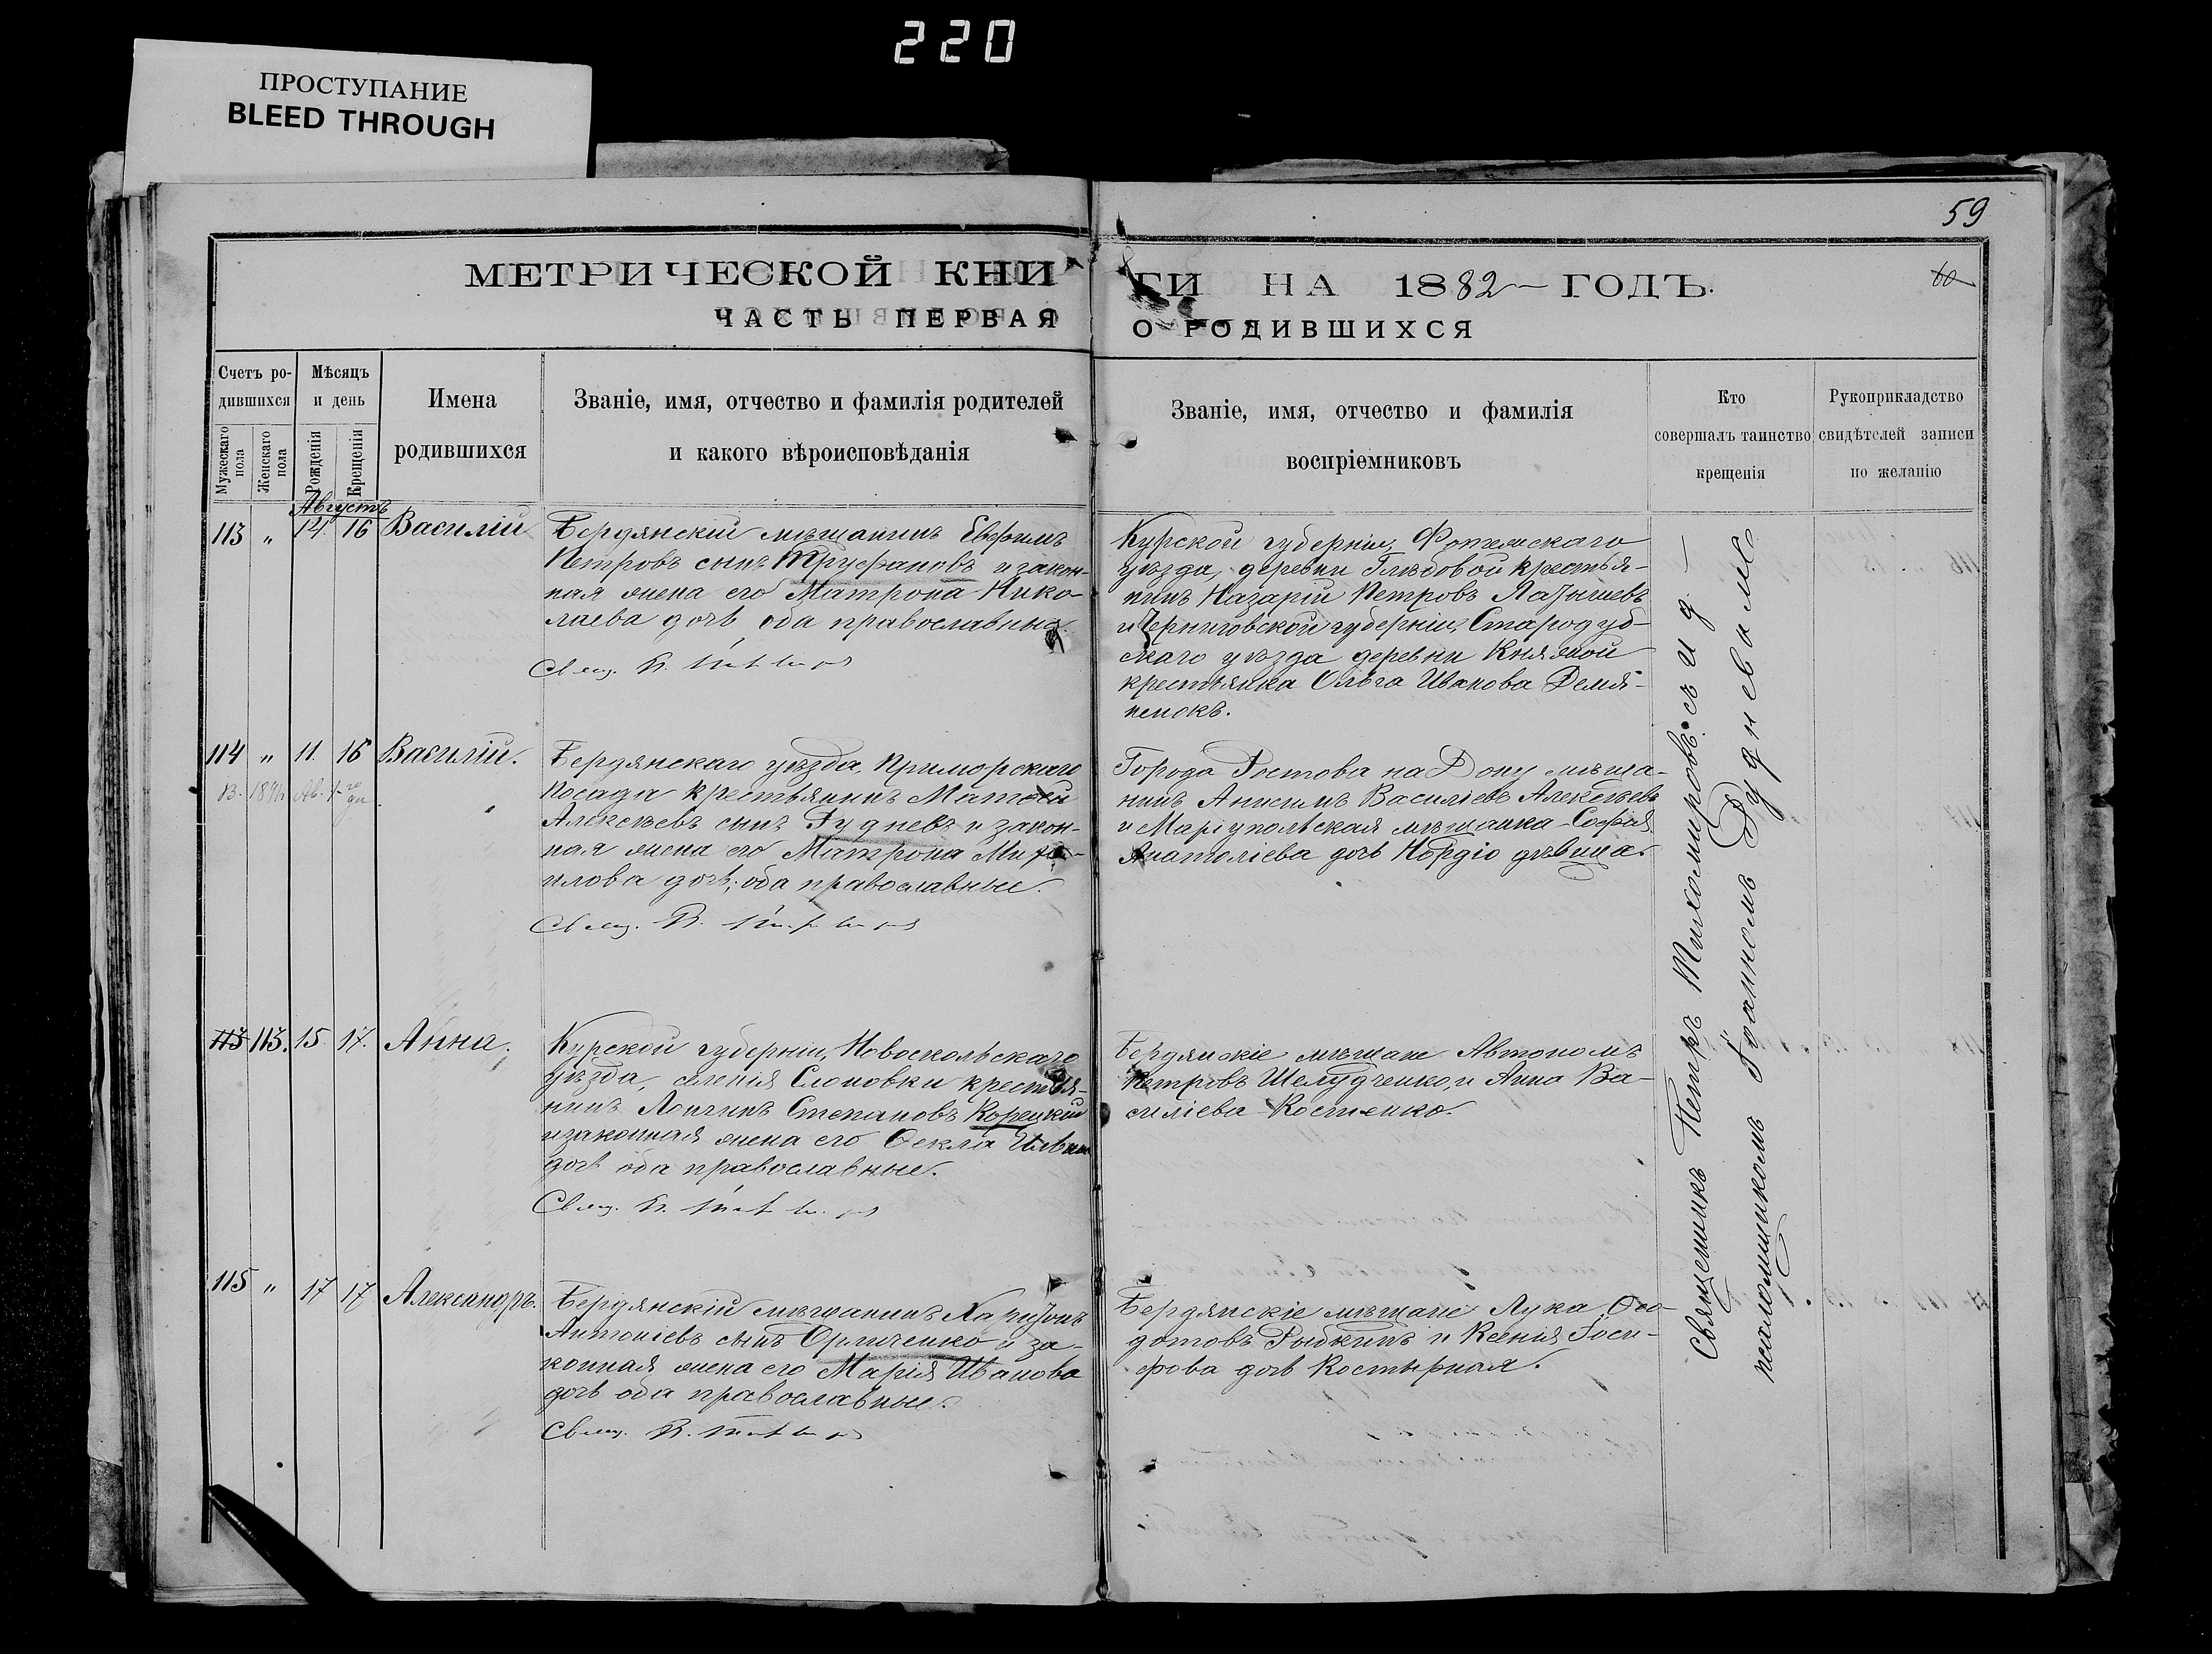 220
ПРОСТУПАНИЕ
BLEED THROUGH
59
60
МЕТРИЧЕСКОЙ КНИ
ГИ НА 1882 ГОДЪ.
ЧАСТЬ ПЕРВАЯ
О РОДИВШИХСЯ
Счетъ ро-
дившихся
Мужескаго
пола
Женскаго
пола
Мѣсяцъ
и день
Рожденія
Крещенія
Имена
родившихся
Званіе, имя, отчество и фамилія родителей
и какого вѣроисповѣданія
Званіе, имя, отчество и фамилія
воспріемниковъ
Кто
совершалъ таинство
крещенія
Рукоприкладство
свидѣтелей записи
по желанію
Августъ
113 " 14. 16 Василій
Бердянскій мѣщанинъ Евфимъ
Петровъ сынъ Труфановъ и закон-
ная жена его Матрона Нико-
лаева дочь, оба православные.
Свящ. П.
Курской губерніи, Фатежскаго
уѣзда, деревни Глѣбовой крестья-
нинъ Назарій Петровъ Латышевъ
и Черниговской губерніи, Стародуб-
скаго уѣзда деревни Княжой
крестьянка Ольга Иванова Демя-
ненокъ.
114 " 11. 16 Василій.
Бердянскаго уѣзда, Приморскаго
Посада крестьянинъ Матѳей
Алексѣевъ сынъ Рудневъ и закон-
ная жена его Матрона Миха-
илова дочь; оба православные.
Свящ. П.
Города Ростова на Дону мѣща-
нинъ Анисимъ Василіевъ Алексѣевъ
и Маріупольская мѣщанка София
Анатоліева дочь Нордіо дѣвица.
113 113. 15. 17. Анна.
Курской губерніи, Новоскольскаго
уѣзда, селенія Слоновки крестья-
нинъ Лонгинъ Степановъ Корецкій
и законная жена его Ѳекла Ильина
дочь оба православные.
Свящ. П.
Бердянскіе мѣщане Автономъ
Петровъ Шелудченко, и Анна Ва-
силіева Костенко.
115 " 17 17 Александръ.
Бердянскій мѣщанинъ Харитонъ
Антоніевъ сынъ Орличенко и за-
конная жена его Марія Иванова
дочь оба православные.
Свящ. П.
Бердянскіе мѣщане Лука Ѳео-
дотовъ Рыбкинъ и Ксенія Іоси-
фова дочь Костырная.
Священникъ Петръ Тихомировъ съ и. д.
псаломщикомъ Іоанномъ Рудневымъ